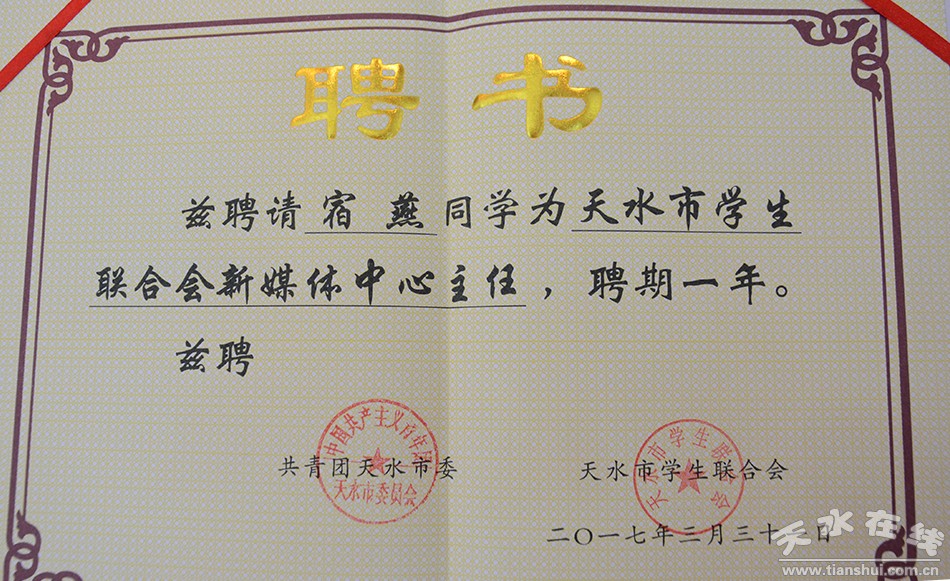 聘书
兹聘请 宿 燕 同学为天水市学生
联合会新媒体中心主任，聘期一年。
兹聘
中国共产主义青年团
天水市委员会
共青团天水市委
天水市学生联合会
天水市学生联合会
二〇一七年三月三十 日
天水在线
www.tianshui.com.cn